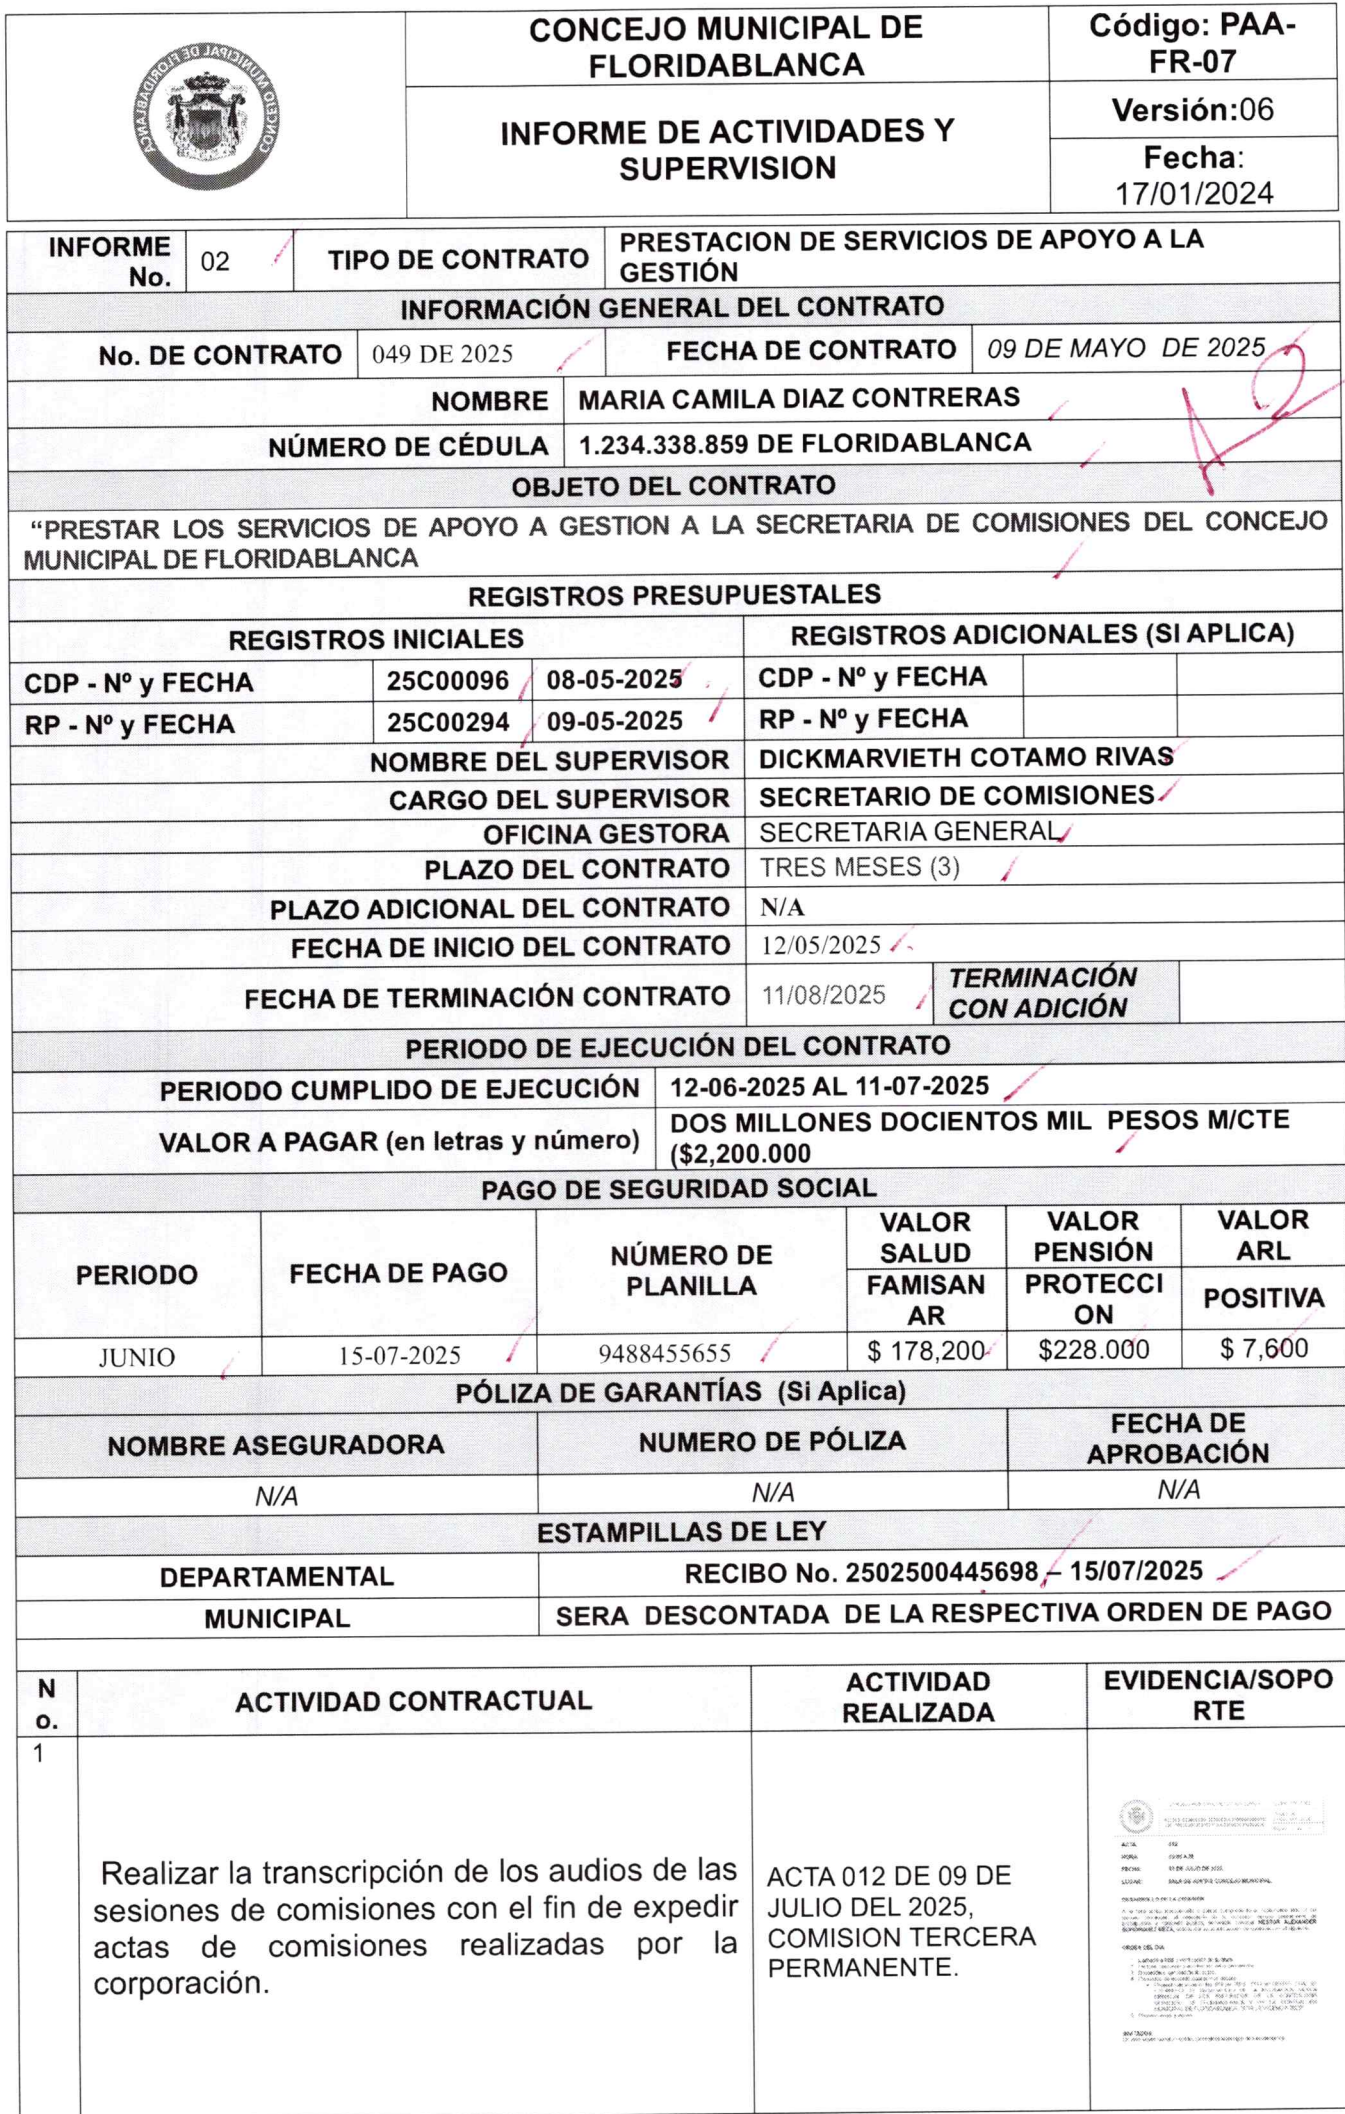 CONCEJO MUNICIPAL DE FLORIDABLANCA
CONCEJO MUNICIPAL DE
FLORIDABLANCA
Código: PAA-
FR-07
INFORME DE ACTIVIDADES Y
SUPERVISION
Versión:06
Fecha:
17/01/2024
INFORME
No.
02
TIPO DE CONTRATO
PRESTACION DE SERVICIOS DE APOYO A LA
GESTIÓN
INFORMACIÓN GENERAL DEL CONTRATO
No. DE CONTRATO
049 DE 2025
FECHA DE CONTRATO
09 DE MAYO DE 2025
NOMBRE
MARIA CAMILA DIAZ CONTRERAS
NÚMERO DE CÉDULA
1.234.338.859 DE FLORIDABLANCA
OBJETO DEL CONTRATO
“PRESTAR LOS SERVICIOS DE APOYO A GESTION A LA SECRETARIA DE COMISIONES DEL CONCEJO
MUNICIPAL DE FLORIDABLANCA
REGISTROS PRESUPUESTALES
REGISTROS INICIALES
REGISTROS ADICIONALES (SI APLICA)
CDP - Nº y FECHA
25C00096
08-05-2025
CDP - Nº y FECHA
RP - Nº y FECHA
25C00294
09-05-2025
RP - Nº y FECHA
NOMBRE DEL SUPERVISOR
DICKMARVIETH COTAMO RIVAS
CARGO DEL SUPERVISOR
SECRETARIO DE COMISIONES
OFICINA GESTORA
SECRETARIA GENERAL
PLAZO DEL CONTRATO
TRES MESES (3)
PLAZO ADICIONAL DEL CONTRATO
N/A
FECHA DE INICIO DEL CONTRATO
12/05/2025
FECHA DE TERMINACIÓN CONTRATO
11/08/2025
TERMINACIÓN
CON ADICIÓN
PERIODO DE EJECUCIÓN DEL CONTRATO
PERIODO CUMPLIDO DE EJECUCIÓN
12-06-2025 AL 11-07-2025
VALOR A PAGAR (en letras y número)
DOS MILLONES DOCIENTOS MIL PESOS M/CTE
($2,200.000
PAGO DE SEGURIDAD SOCIAL
PERIODO
FECHA DE PAGO
NÚMERO DE
PLANILLA
VALOR
SALUD
VALOR
PENSIÓN
VALOR
ARL
FAMISAN
AR
PROTECCI
ON
POSITIVA
JUNIO
15-07-2025
9488455655
$ 178,200
$228.000
$ 7,600
PÓLIZA DE GARANTÍAS (Si Aplica)
NOMBRE ASEGURADORA
NUMERO DE PÓLIZA
FECHA DE
APROBACIÓN
N/A
N/A
N/A
ESTAMPILLAS DE LEY
DEPARTAMENTAL
RECIBO No. 2502500445698 – 15/07/2025
MUNICIPAL
SERA DESCONTADA DE LA RESPECTIVA ORDEN DE PAGO
N
o.
ACTIVIDAD CONTRACTUAL
ACTIVIDAD
REALIZADA
EVIDENCIA/SOPO
RTE
1
Realizar la transcripción de los audios de las
sesiones de comisiones con el fin de expedir
actas de comisiones realizadas por la
corporación.
ACTA 012 DE 09 DE
JULIO DEL 2025,
COMISION TERCERA
PERMANENTE.